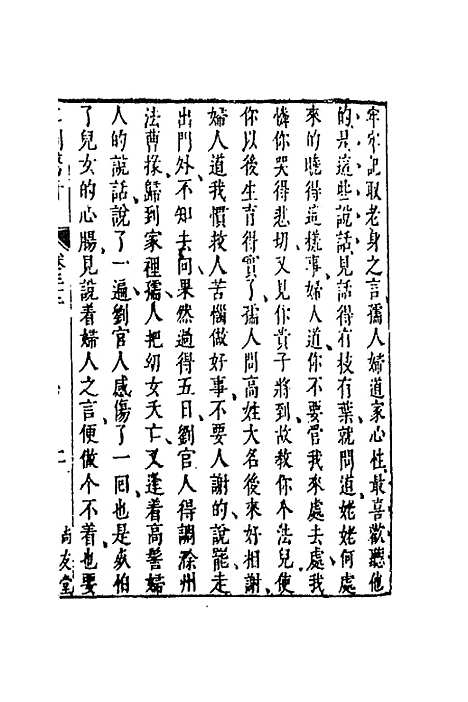 牢牢記取老身之言孺人婦道家心性最喜歡聽他
的是這些說話見話得有枝有葉就問道姥姥何處
來的曉得這樣事婦人道你不要管我來處去處我
憐你哭得悲切又見你貴子將到故教你个法兒使
你以後生育得實了孺人問高姓大名後來好相謝
婦人道我慣救人苦惱做好事不要人謝的說罷走
出門外不知去向果然過得五日劉官人得調滁州
法曹掾歸到家裡孺人把幼女夭亡又逢着高髻婦
人的說話說了一遍劉官人感傷了一回也是死怕
了兒女的心腸見說着婦人之言便做个不着也要
卷三十二
二
尚友堂